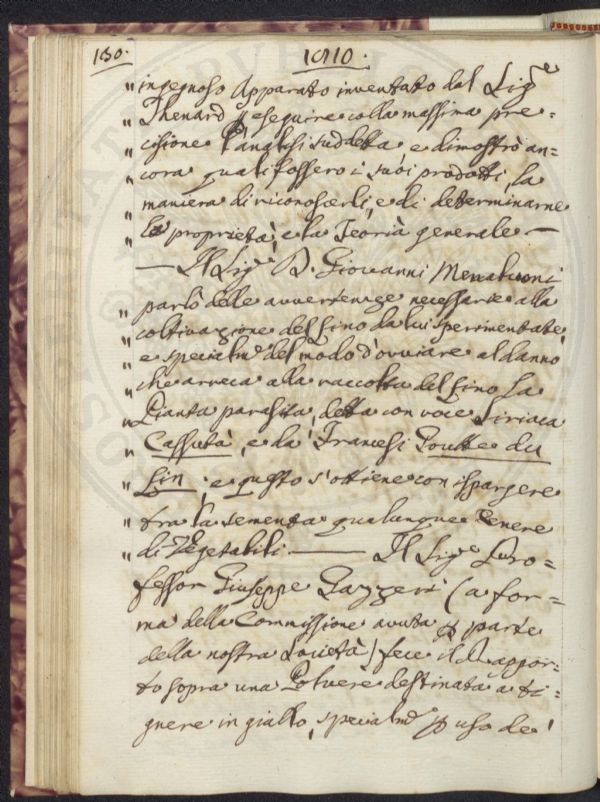 130.
1810.
" ingegnoso Apparato inventato dal Sig.e
" Thenard p eseguire colla massima pre=
" cisione l'analisi suddetta e dimostrò an=
" cora quali fossero i suoi prodotti, la
" maniera di riconoscerli, e di determinarne
" le proprietà, e la Teoria generale —
— Il Sig.e D. Giovanni
" parlò delle avvertenze necessarie alla
" coltivazione del Lino da lui sperimentate,
" e specialm.e del modo d'ovviare al danno
" che arreca alla raccolta del Lino la
" Pianta parasita, detta con voce Siriaca
" Cassutà, e da' Francesi Goutte du
" Lin; e questo s'ottiene con ispargere
" tra la sementa qualunque Cenere
" di Vegetabili — Il Sig.e Pro=
fessor Giuseppe Gazzeri (a for=
ma della Commissione avuta p parte
della nostra Società) fece il Rappor=
to sopra una Polvere destinata a ti=
gnere in giallo, specialm.e p uso de'